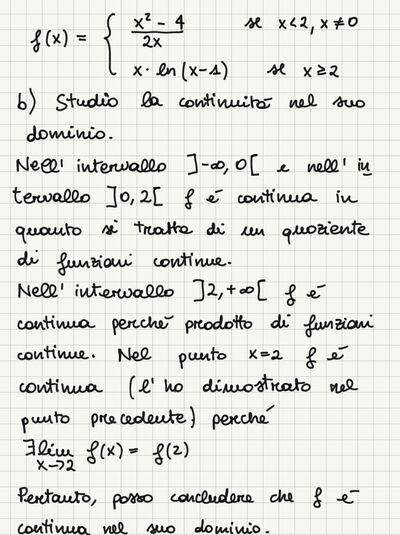 f(x) = { x² - 4 / 2x se x<2, x≠0
x · ln (x-1) se x ≥ 2
b) Studio la continuità nel suo
dominio.
Nell' intervallo ]-∞, 0[ e nell' in
tervallo ]0, 2[ f é continua in
quanto si tratta di un quoziente
di funzioni continue.
Nell' intervallo ]2, +∞[ f é
continua perché prodotto di funzioni
continue. Nel punto x=2 f é
continua (l' ho dimostrato nel
punto precedente) perché
∃ lim f(x) = f(2)
x→2
Pertanto, posso concludere che f é
continua nel suo dominio.